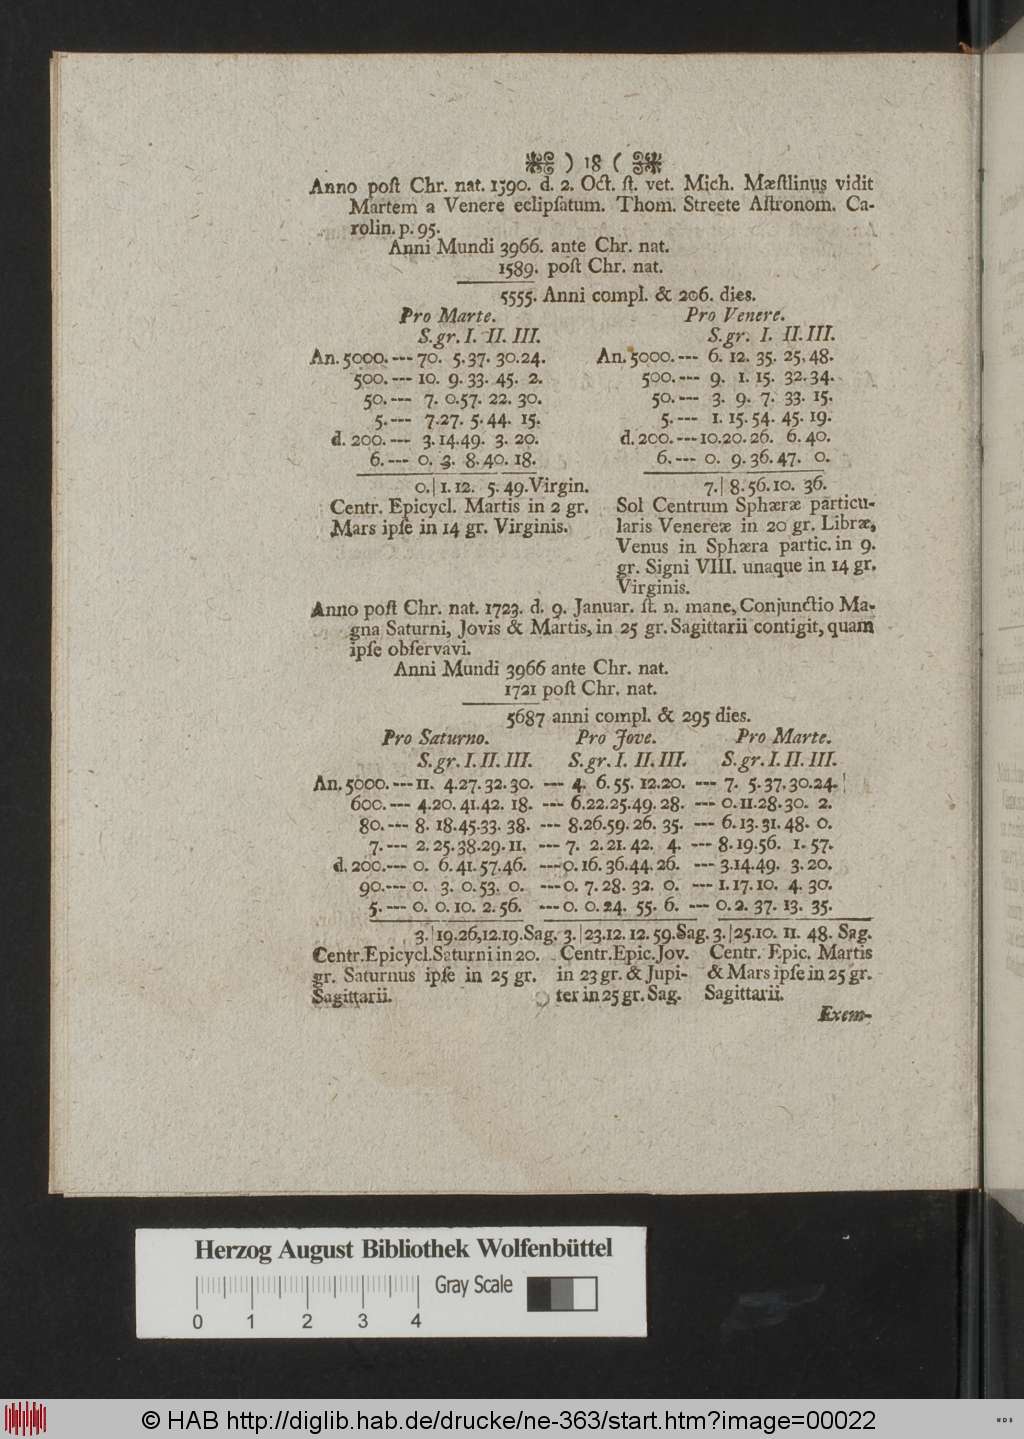 ) 18 (
Anno poſt Chr. nat. 1590. d. 2. Oct. ſt. vet. Mich. Mæſtlinus vidit
Martem a Venere eclipſatum. Thom. Streete Aſtronom. Ca-
rolin. p. 95.
Anni Mundi 3966. ante Chr. nat.
1589. poſt Chr. nat.
5555. Anni compl. & 206. dies.
Pro Marte. Pro Venere.
S.gr. I. II. III. S.gr. I. II. III.
An. 5000. --- 70. 5.37. 30.24. An. 5000. --- 6. 12. 35. 25.48.
500. --- 10. 9.33. 45. 2. 500. --- 9. 1. 15. 32.34.
50. --- 7. 0.57. 22. 30. 50. --- 3. 9. 7. 33. 15.
5. --- 7.27. 5.44. 15. 5. --- 1. 15.54. 45. 19.
d. 200. --- 3.14.49. 3. 20. d. 200. --- 10.20.26. 6.40.
6. --- 0. 3. 8.40. 18. 6. --- 0. 9.36.47. 0.
0.| 1.12. 5.49.Virgin. 7.| 8.56.10. 36.
Centr. Epicycl. Martis in 2 gr. Sol Centrum Sphæræ particu-
Mars ipſe in 14 gr. Virginis. laris Venereæ in 20 gr. Libræ,
Venus in Sphæra partic. in 9.
gr. Signi VIII. unaque in 14 gr.
Virginis.
Anno poſt Chr. nat. 1723. d. 9. Januar. ſt. n. mane, Conjunctio Ma-
gna Saturni, Jovis & Martis, in 25 gr. Sagittarii contigit, quam
ipſe obſervavi.
Anni Mundi 3966 ante Chr. nat.
1721 poſt Chr. nat.
5687 anni compl. & 295 dies.
Pro Saturno. Pro Jove. Pro Marte.
S.gr. I. II. III. S.gr. I. II. III. S.gr. I. II. III.
An. 5000. --- 11. 4.27.32.30. --- 4. 6.55. 12.20. --- 7. 5.37.30.24.
600. --- 4.20. 41.42. 18. --- 6.22.25.49. 28. --- 0.11.28.30. 2.
80. --- 8. 18.45.33. 38. --- 8.26.59.26. 35. --- 6.13.31.48. 0.
7. --- 2. 25.38.29.11. --- 7. 2.21.42. 4. --- 8.19.56. 1.57.
d. 200. --- 0. 6.41.57.46. --- 0.16.36.44.26. --- 3.14.49. 3.20.
90. --- 0. 3. 0.53. 0. --- 0. 7.28. 32. 0. --- 1.17.10. 4.30.
5. --- 0. 0.10. 2.56. --- 0. 0.24. 55. 6. --- 0.2. 37. 13. 35.
3.|19.26,12.19.Sag. 3.|23.12. 12. 59.Sag. 3.|25.10. 11. 48. Sag.
Centr.Epicycl.Saturni in 20. Centr.Epic.Jov. Centr. Epic. Martis
gr. Saturnus ipſe in 25 gr. in 23 gr. & Jupi- & Mars ipſe in 25 gr.
Sagittarii. ter in 25 gr. Sag. Sagittarii.
Exem-
Herzog August Bibliothek Wolfenbüttel
Gray Scale
0 1 2 3 4
© HAB http://diglib.hab.de/drucke/ne-363/start.htm?image=00022